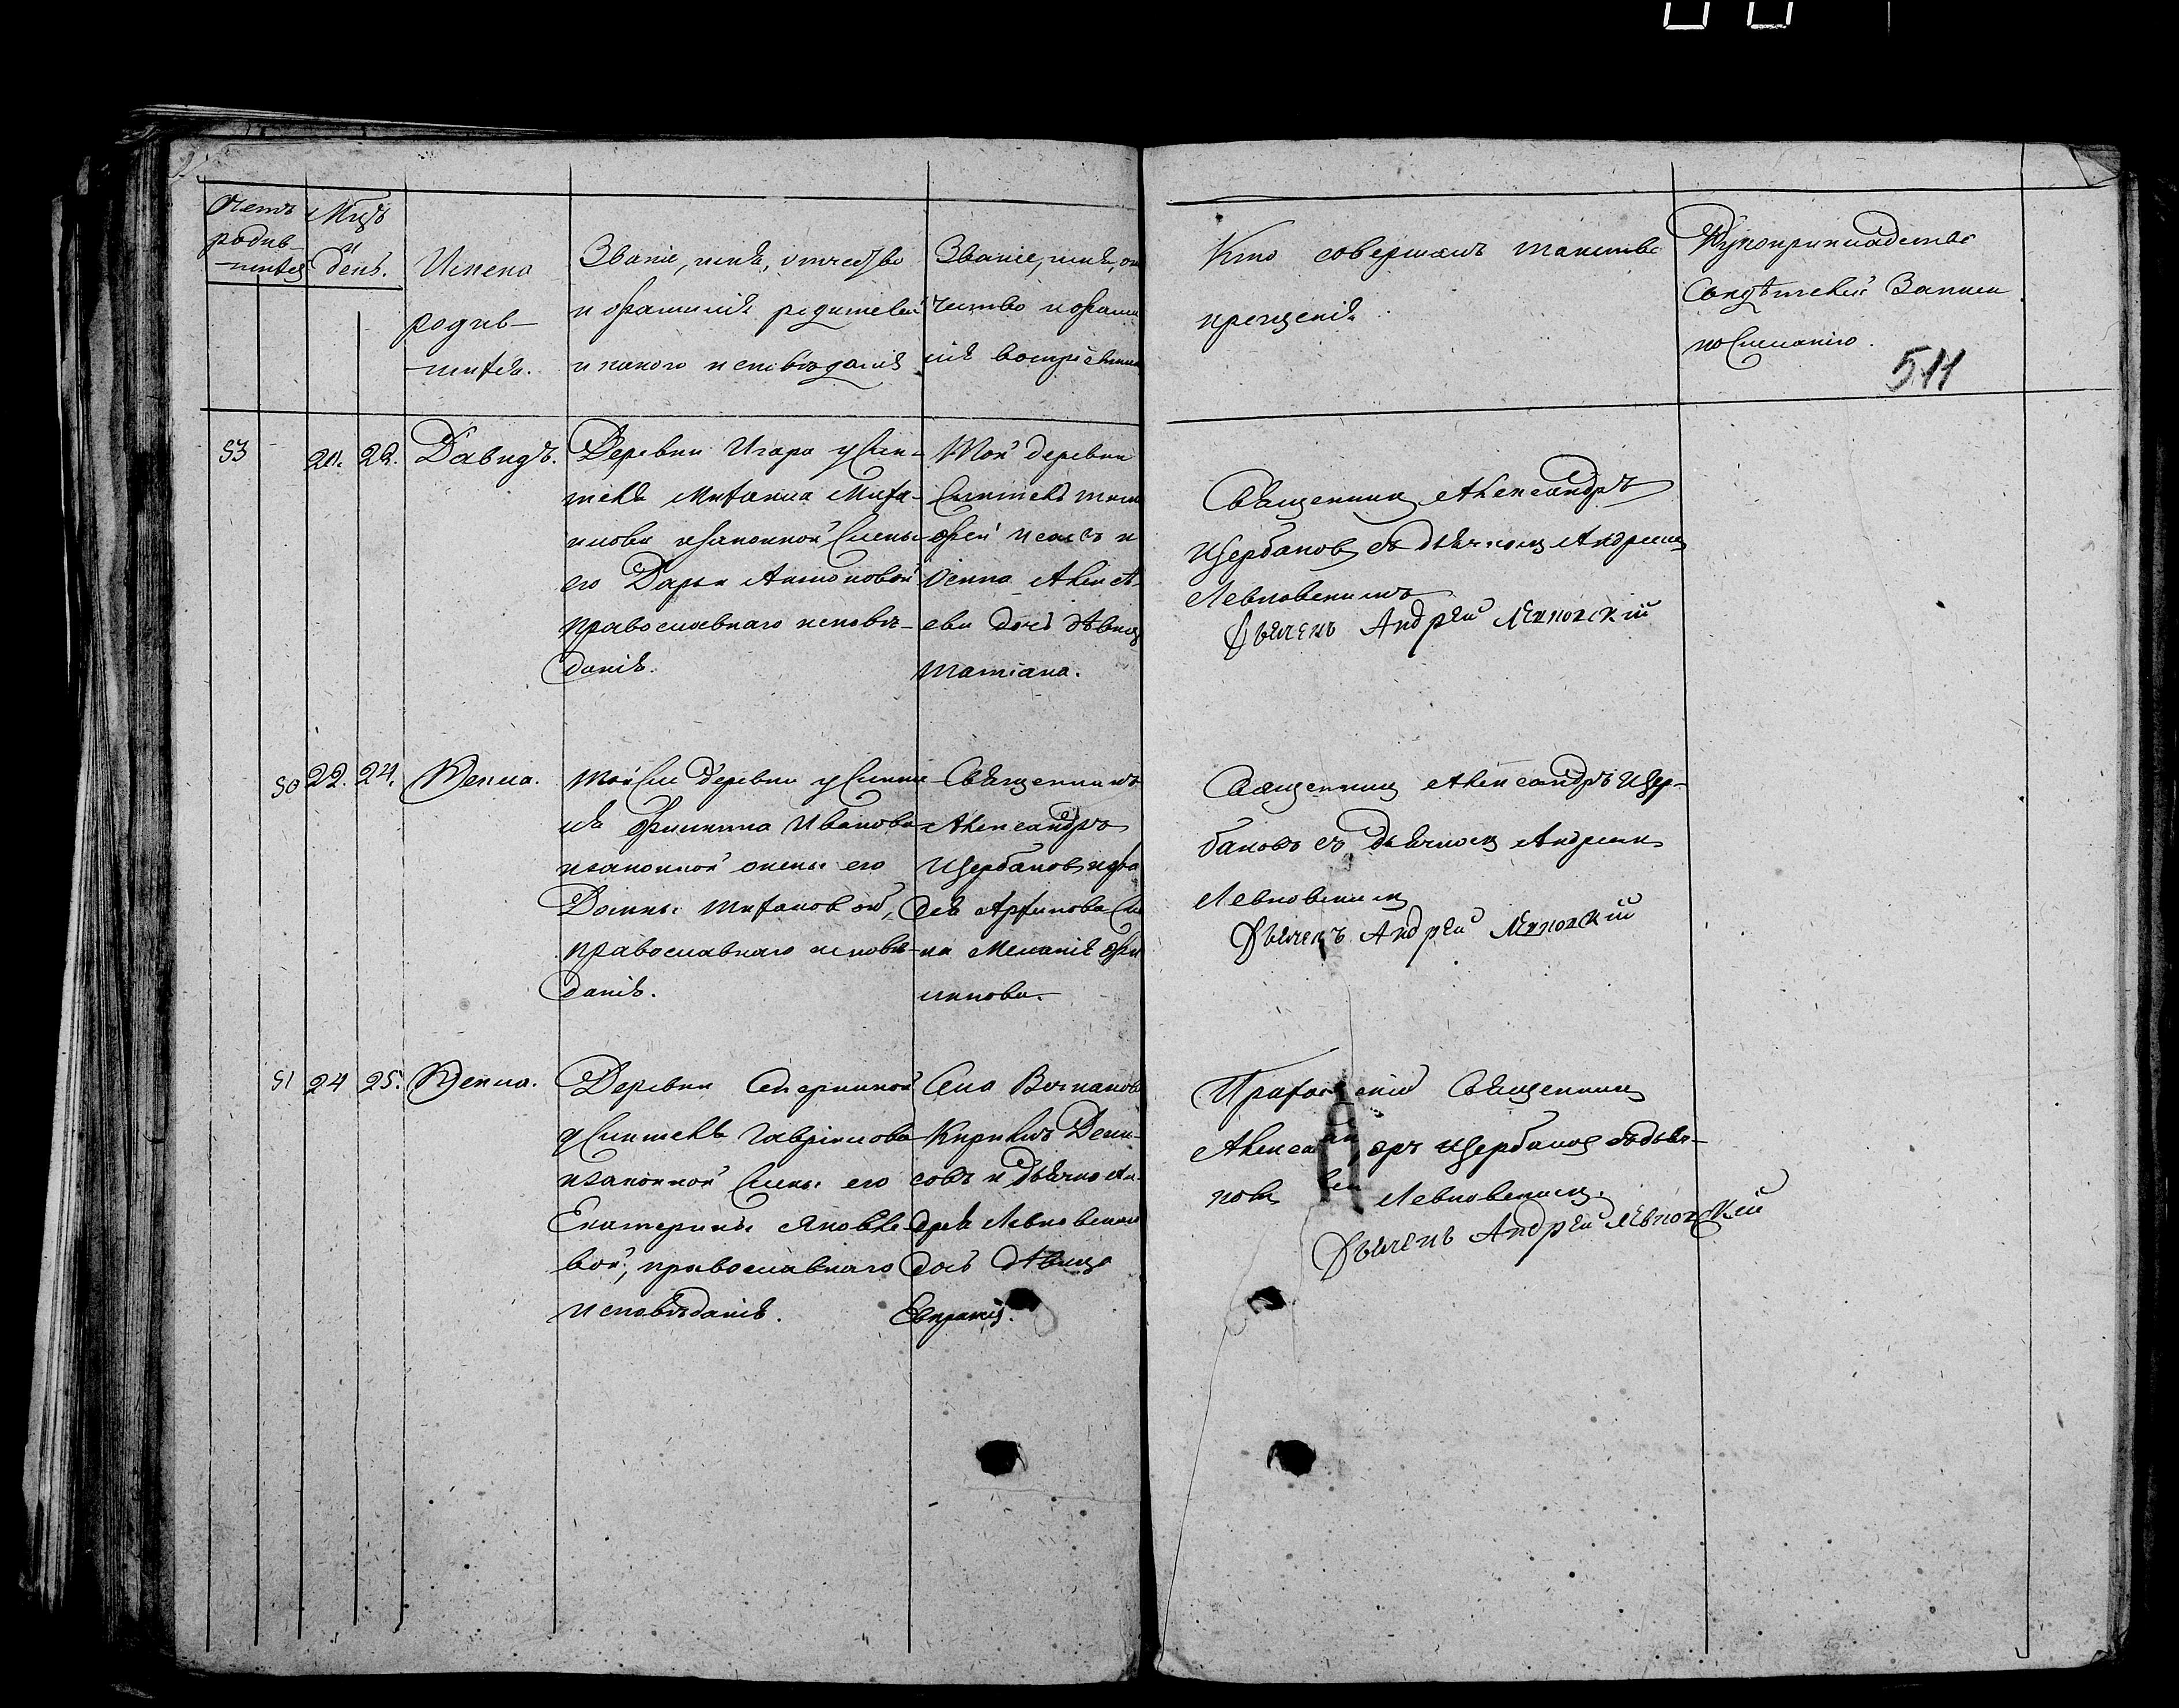 Счетъ
родив-
шихся
Мцъ
и
день.
Имена
родив-
шихся.
Званіе, имя, отчество
и фамилія родителей
и какого исповѣданія
Званіе, имя, от
чество и фами
лія воспріемник
Кто совершалъ таинство
крещенія
Рукоприкладство
Свидѣтелей Записи
по Желанію.
511
53
20. 22.
Давидъ.
Деревни Игара у Жи-
теля Михаила Миха-
илова и законной Жены
его Дарьи Антоновой
православнаго исповѣ-
данія.
Той деревни
Житель Тимо
фей и
Алексѣ-
ева дочь дѣвица
Татіана.
Священникъ Александръ
Щербаковъ съ дьячкомъ Андреемъ
Левковскимъ
Дьячекъ Андрей Левковскій
50 22. 24.
Ксенiя.
Той же деревни у Жите
ля Филиппа Иванова
и законной жены его
Домны
православнаго исповѣ-
данія.
Священникъ
Александръ
Щербаковъ и
Же
на Меланія Фи
липпова.
Священникъ Александръ Щер-
баковъ съ дьячкомъ Андреемъ
Левковскимъ
Дьячекъ Андрей Левковскій
51 24 25.
Ксенiя.
Деревни
у Жителя Гавріилова
и законной Жены его
Екатерины Яковле
вой, православнаго
исповѣданія.
Села
Кирилъ Дени-
совъ и дьячка Ан-
дрея Левковскаго
дочь дѣвица
Евпраксія.
Священникъ
Александръ Щербаковъ съ дьяч-
комъ Левковскимъ
Дьячекъ Андрей Левковскій